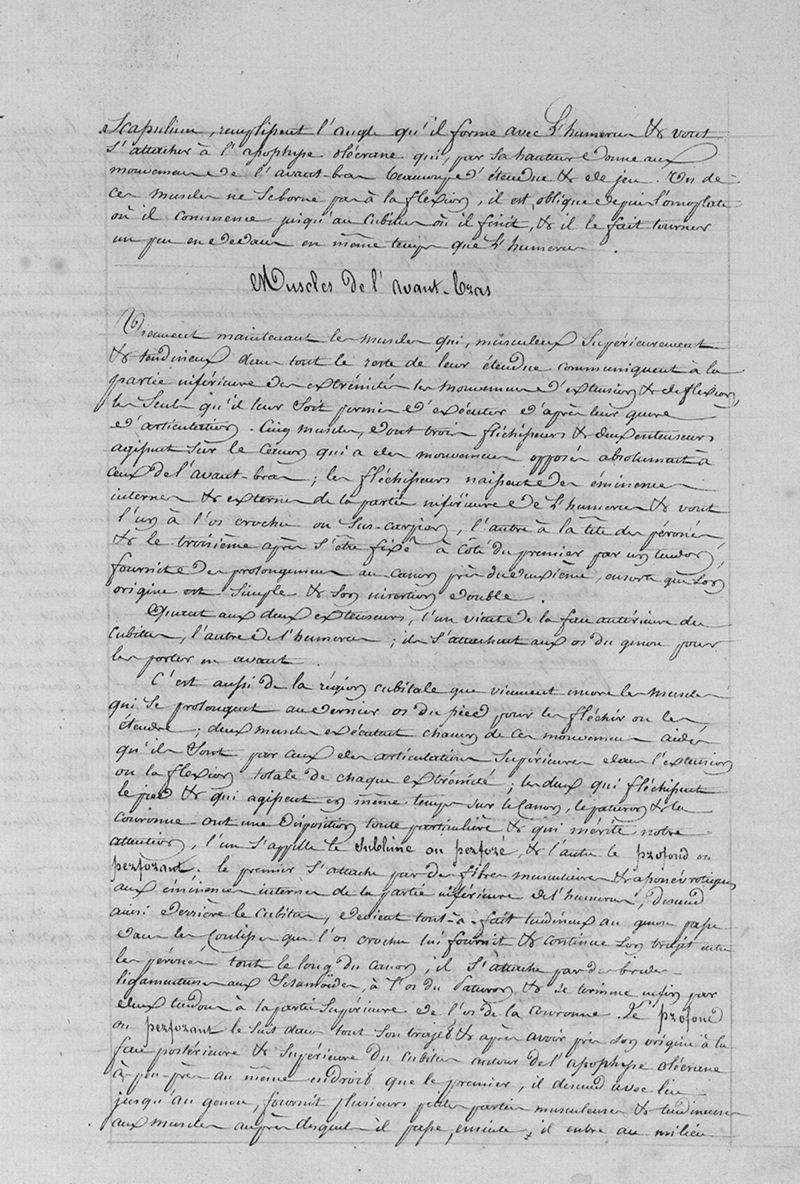 Scapulum, remplissent l'angle qu'il forme avec L'humerus & vont
s'attacher à l'apophyse olécrane qui, par sa hauteur donne aux
mouvemens de l'avant-bras beaucoup d'étendue & de jeu. Un de
ces muscles ne se borne pas à la flexion, il est oblique depuis l'omoplate
où il commence jusqu'au cubitus où il finit, & il le fait tourner
un peu en dedans en même temps que L'humerus.
Muscles de l'avant-bras
Viennent maintenant les muscles qui, musculeux supérieurement
& tendineux dans tout le reste de leur étendue communiquent à la
partie inférieure des extrémités les mouvemens d'extension & de flexion,
les seuls qu'il leur soit permis d'exécuter d'après leur genre
d'articulation. Cinq muscles, dont trois fléchisseurs & deux extenseurs
agissent sur le Canon qui a des mouvemens opposés absolument à
ceux de l'avant-bras; les fléchisseurs naissent des éminences
internes & externes de la partie inférieure de L'humerus & vont
l'un à l'os crochu ou sus-carpien, l'autre à la tête des péronés
& le troisième après s'être fixé à côté du premier par un tendon,
fournit des prolongemens au canon près du deuxième, ensorte que son
origine est simple & son insertion double.
Quant aux deux extenseurs, l'un vient de la face antérieure du
cubitus, l'autre de l'humerus; ils s'attachent aux os du genou pour
les porter en avant.
C'est aussi de la région cubitale que viennent encore les muscles
qui se prolongent au dernier os du pied pour les fléchir ou les
étendre; deux muscles exécutent chacun de ces mouvemens aidés
qu'ils sont par ceux des articulations supérieures dans l'extension
ou la flexion totale de chaque extrémité; les deux qui fléchissent
le pied & qui agissent en même temps sur le Canon, le paturon & la
couronne ont une disposition toute particulière & qui mérite notre
attention, l'un s'appelle le sublime ou perforé, & l'autre le profond ou
perforant. le premier s'attache par des fibres musculaires & aponévrotiques
aux éminences internes de la partie inférieure de l'humerus, descend
ainsi derrière le cubitus, devient tout-à-fait tendineux au genou passe
dans les coulisses que l'os crochu lui fournit & continue son trajet entre
les péronés tout le long du canon, il s'attache par des brides
ligamenteuses aux sésamoïdes, à l'os du Paturon & se termine enfin par
deux tendons à la partie supérieure de l'os de la couronne. Le profond
ou perforant le suit dans tout son trajet & après avoir pris son origine à la
face postérieure & supérieure du cubitus autour de l'apophyse olécrane
à-peu-près au même endroit que le premier, il descend avec lui
jusqu'au genou, fournit plusieurs petites parties musculeuses & tendineuses
aux muscles auprès desquels il passe, ensuite, il entre au milieu